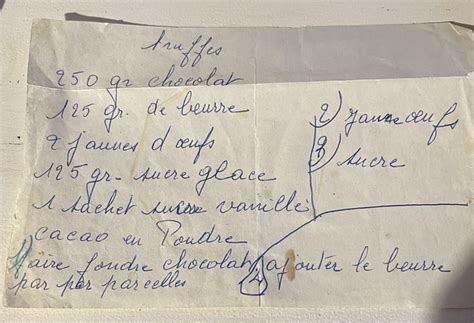 truffes
250 gr chocolat
125 gr. de beurre
2 jaunes d œufs
125 gr - sucre glace
1 sachet sucre vanillé
cacao en Poudre
2) jaune œufs
3) sucre
faire fondre chocolat ajouter le beurre
par par parcelles